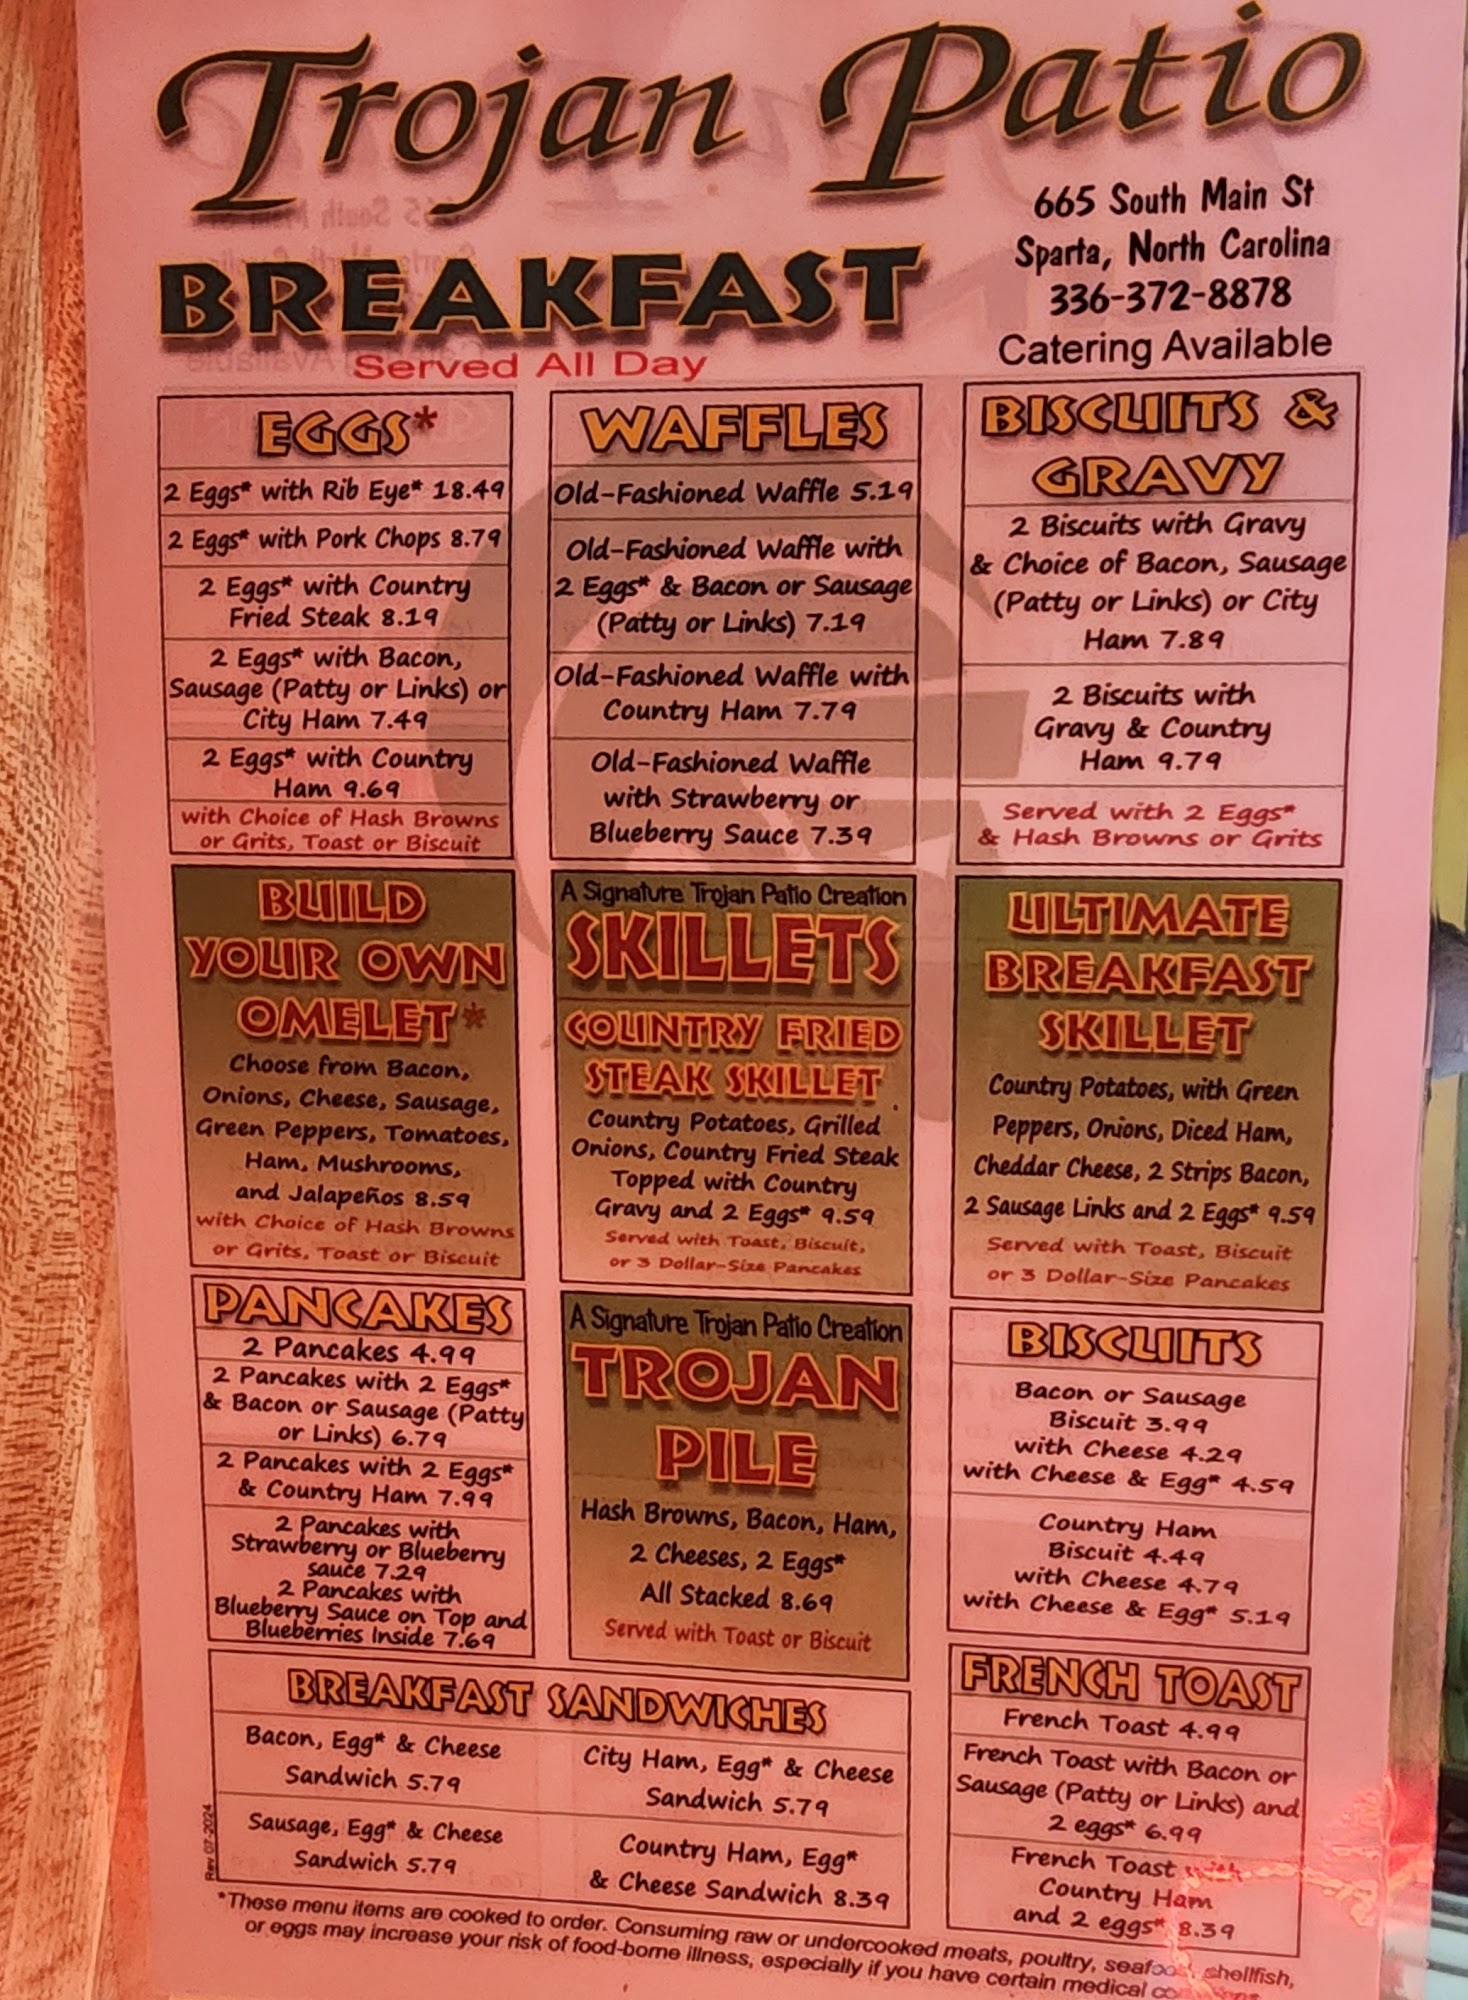 Trojan Patio
BREAKFAST
Served All Day
665 South Main St
Sparta, North Carolina
336-372-8878
Catering Available
EGGS*
2 Eggs* with Rib Eye* 18.49
2 Eggs* with Pork Chops 8.79
2 Eggs* with Country
Fried Steak 8.19
2 Eggs* with Bacon,
Sausage (Patty or Links) or
City Ham 7.49
2 Eggs* with Country
Ham 9.69
with Choice of Hash Browns
or Grits, Toast or Biscuit
WAFFLES
Old-Fashioned Waffle 5.19
Old-Fashioned Waffle with
2 Eggs* & Bacon or Sausage
(Patty or Links) 7.19
Old-Fashioned Waffle with
Country Ham 7.79
Old-Fashioned Waffle
with Strawberry or
Blueberry Sauce 7.39
BISCUITS &
GRAVY
2 Biscuits with Gravy
& Choice of Bacon, Sausage
(Patty or Links) or City
Ham 7.89
2 Biscuits with
Gravy & Country
Ham 9.79
Served with 2 Eggs*
& Hash Browns or Grits
BUILD
YOUR OWN
OMELET*
Choose from Bacon,
Onions, Cheese, Sausage,
Green Peppers, Tomatoes,
Ham, Mushrooms,
and Jalapeños 8.59
with Choice of Hash Browns
or Grits, Toast or Biscuit
A Signature Trojan Patio Creation
SKILLETS
COUNTRY FRIED
STEAK SKILLET
Country Potatoes, Grilled
Onions, Country Fried Steak
Topped with Country
Gravy and 2 Eggs* 9.59
Served with Toast, Biscuit,
or 3 Dollar-Size Pancakes
ULTIMATE
BREAKFAST
SKILLET
Country Potatoes, with Green
Peppers, Onions, Diced Ham,
Cheddar Cheese, 2 Strips Bacon,
2 Sausage Links and 2 Eggs* 9.59
Served with Toast, Biscuit
or 3 Dollar-Size Pancakes
PANCAKES
2 Pancakes 4.99
2 Pancakes with 2 Eggs*
& Bacon or Sausage (Patty
or Links) 6.79
2 Pancakes with 2 Eggs*
& Country Ham 7.99
2 Pancakes with
Strawberry or Blueberry
sauce 7.29
2 Pancakes with
Blueberry Sauce on Top and
Blueberries Inside 7.69
A Signature Trojan Patio Creation
TROJAN
PILE
Hash Browns, Bacon, Ham,
2 Cheeses, 2 Eggs*
All Stacked 8.69
Served with Toast or Biscuit
BISCUITS
Bacon or Sausage
Biscuit 3.99
with Cheese 4.29
with Cheese & Egg* 4.59
Country Ham
Biscuit 4.49
with Cheese 4.79
with Cheese & Egg* 5.19
BREAKFAST SANDWICHES
Bacon, Egg* & Cheese
Sandwich 5.79
City Ham, Egg* & Cheese
Sandwich 5.79
Sausage, Egg* & Cheese
Sandwich 5.79
Country Ham, Egg*
& Cheese Sandwich 8.39
FRENCH TOAST
French Toast 4.99
French Toast with Bacon or
Sausage (Patty or Links) and
2 eggs* 6.99
French Toast with
Country Ham
and 2 eggs* 8.39
Rev 07-2024
*These menu items are cooked to order. Consuming raw or undercooked meats, poultry, seafood, shellfish,
or eggs may increase your risk of food-borne illness, especially if you have certain medical